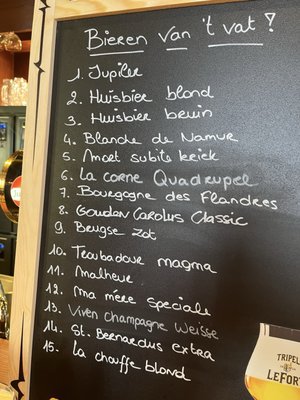 Bieren van 't vat?
1. Jupiler
2. Huisbier blond
3. Huisbier bruin
4. Blanche de Namur
5. Mort subite kriek
6. La corne Quadrupel
7. Bourgogne des Flandres
8. Goudan Carolus Classic
9. Brugse zot
10. Troubadour magma
11. Malheur
12. Ma mère speciale
13. Viven champagne Weisse
14. St. Bernardus extra
15. La chouffe blond
TRIPEL
LEFORT